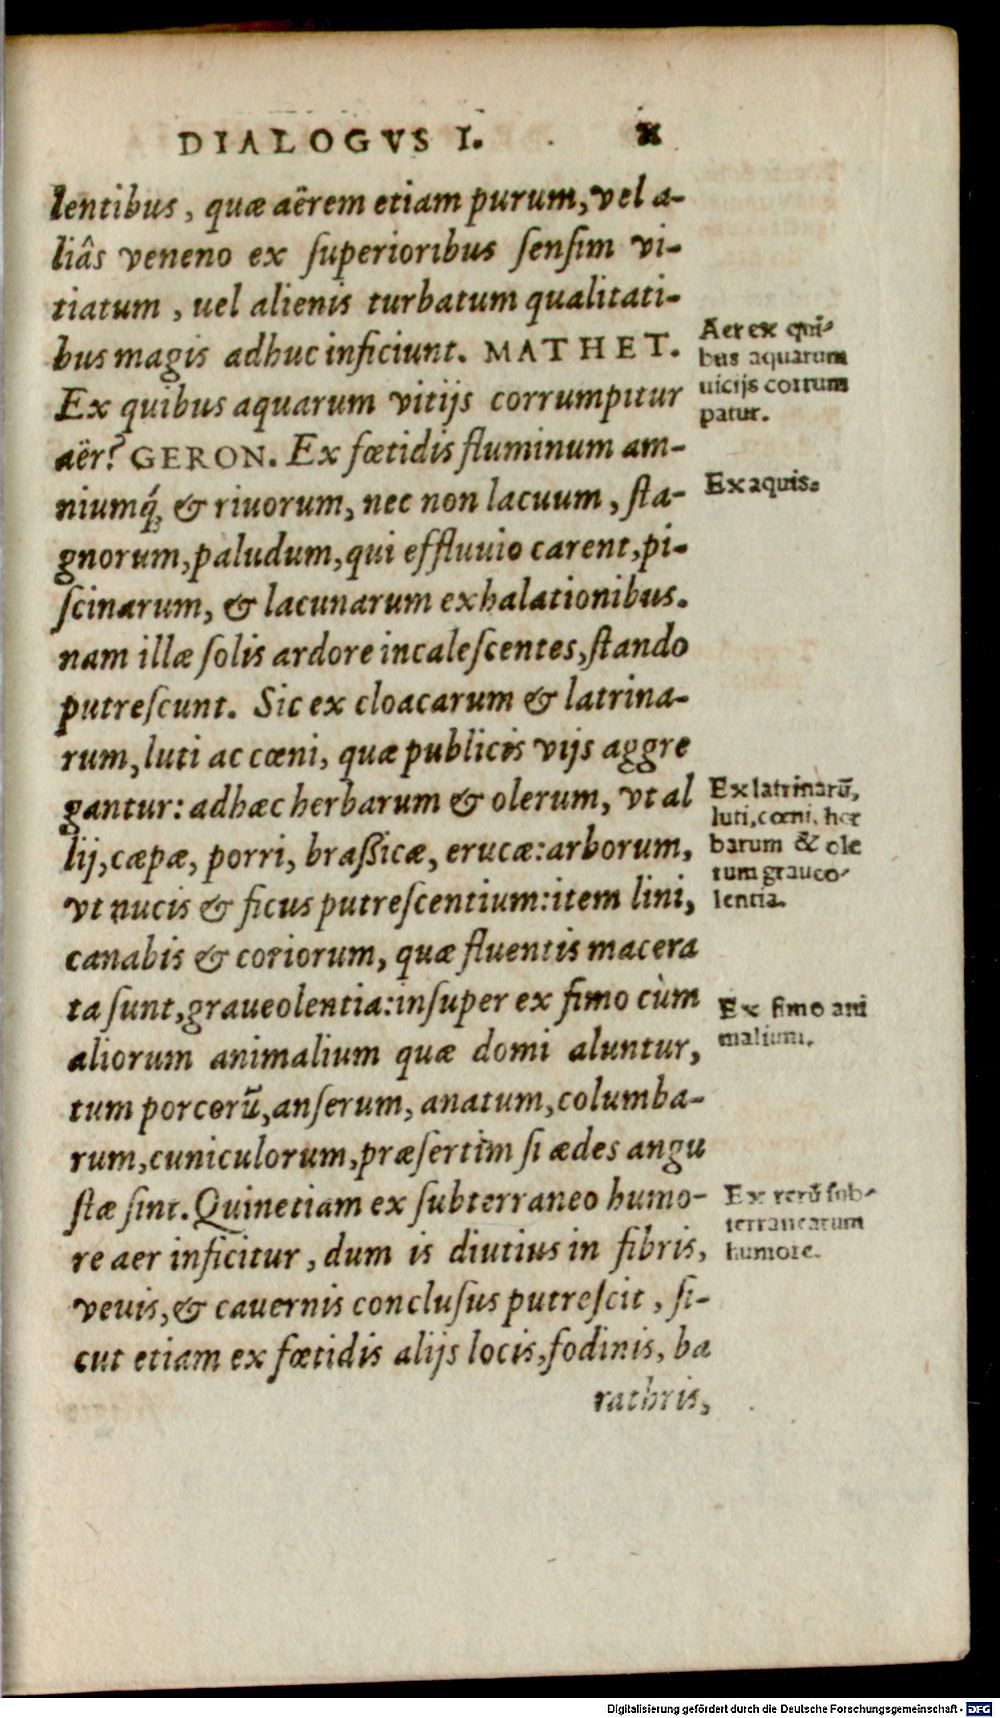 DIALOGVS I.
lentibus, quæ aërem etiam purum, vel a-
liâs veneno ex superioribus sensim vi-
tiatum, uel alienis turbatum qualitati-
bus magis adhuc inficiunt. MATHET.
Ex quibus aquarum vitijs corrumpitur
aër? GERON. Ex fœtidis fluminum am-
niumq́; & riuorum, nec non lacuum, sta-
gnorum, paludum, qui effluuio carent, pi-
scinarum, & lacunarum exhalationibus.
nam illæ solis ardore incalescentes, stando
putrescunt. Sic ex cloacarum & latrina-
rum, luti ac cœni, quæ publicis vijs aggre
gantur: adhæc herbarum & olerum, vt al
lij, cæpæ, porri, braßicæ, erucæ: arborum,
vt nucis & ficus putrescentium: item lini,
canabis & coriorum, quæ fluentis macera
ta sunt, graueolentia: insuper ex fimo cùm
aliorum animalium quæ domi aluntur,
tum porcorū, anserum, anatum, columba-
rum, cuniculorum, præsertim si ædes angu
stæ sint. Quinetiam ex subterraneo humo-
re aer inficitur, dum is diutius in fibris,
venis, & cauernis conclusus putrescit, si-
cut etiam ex fœtidis alijs locis, fodinis, ba
rathris,
Aer ex qui-
bus aquarum
uicijs corrum
patur.
Ex aquis.
Ex latrinarū,
luti, cœni, her
barum & ole
rum graueo-
lentia.
Ex fimo ani
malium.
Ex rerū sub-
terranearum
humore.
Digitalisierung gefördert durch die Deutsche Forschungsgemeinschaft - DFG